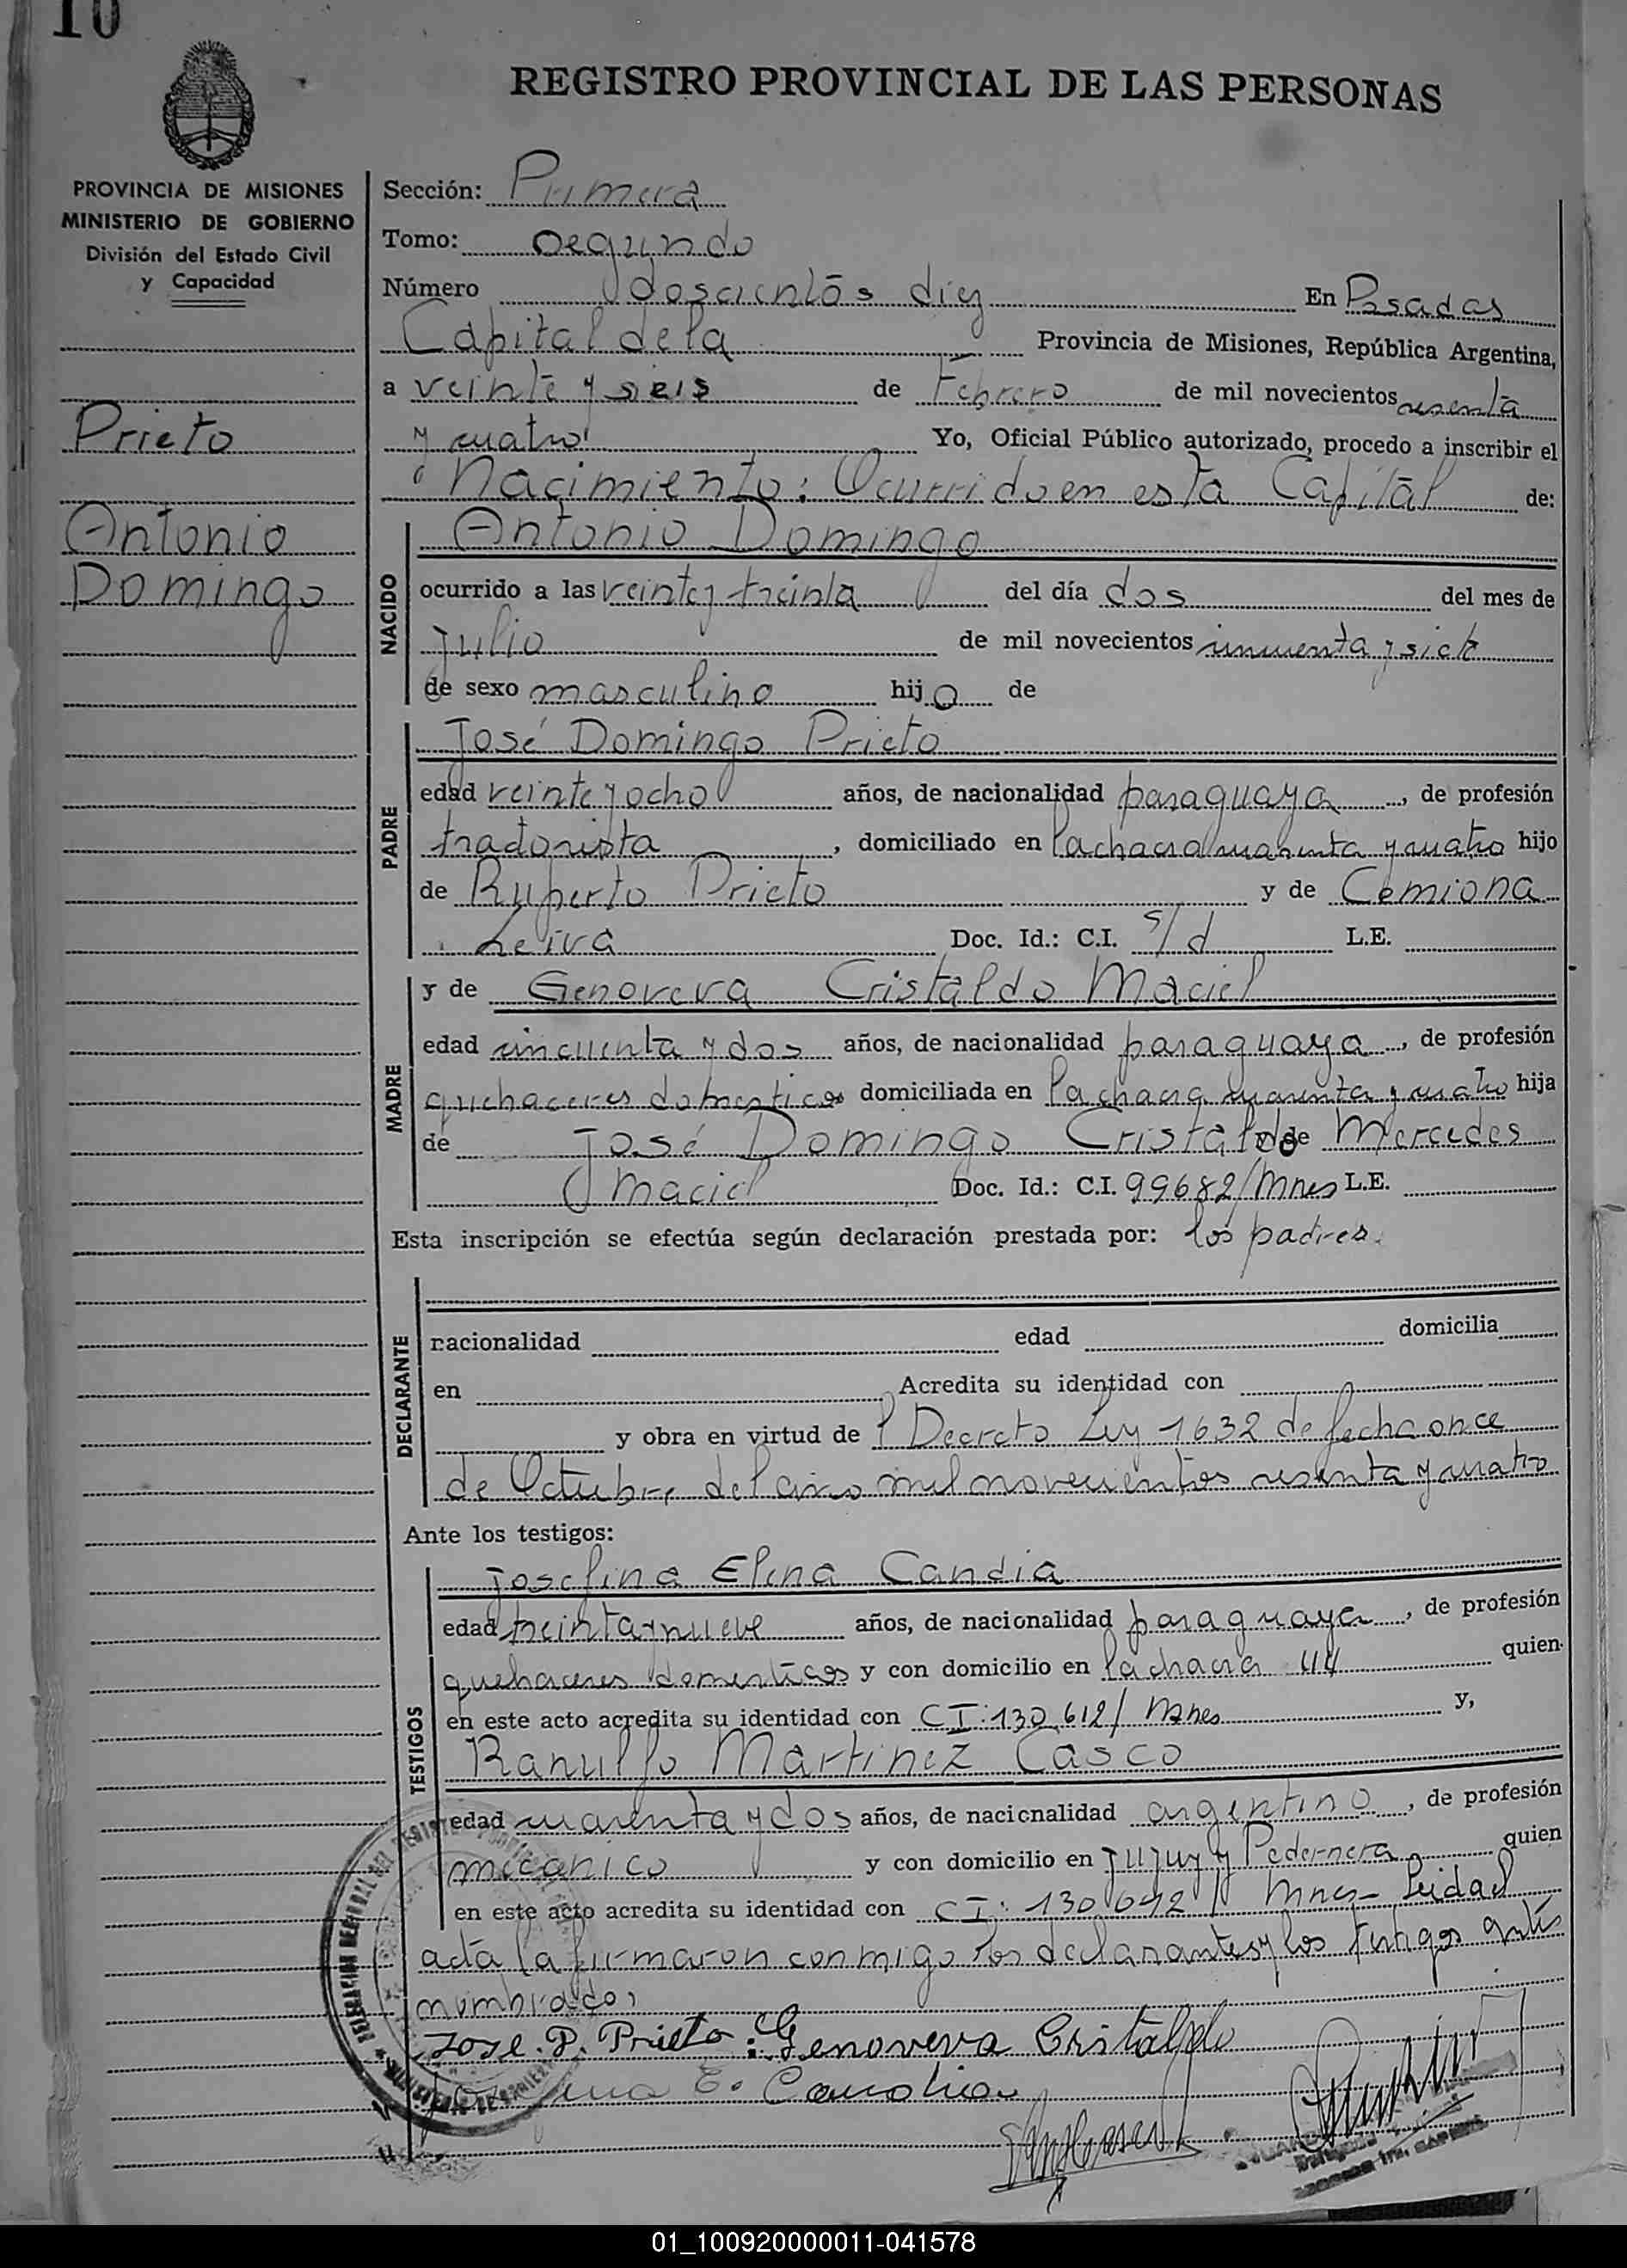 10
REGISTRO PROVINCIAL DE LAS PERSONAS
PROVINCIA DE MISIONES
MINISTERIO DE GOBIERNO
División del Estado Civil
y Capacidad
Prieto
Antonio
Domingo
Sección: Primera
Tomo: segundo
Número doscientos diez En Posadas
Capital de la Provincia de Misiones, República Argentina,
a veinte y seis de Febrero de mil novecientos sesenta
y cuatro Yo, Oficial Público autorizado, procedo a inscribir el
Nacimiento: Ocurrido en esta Capital de:
NACIDO
Antonio Domingo
ocurrido a las veinte y treinta del día dos del mes de
julio de mil novecientos cincuenta y siete
de sexo masculino hijo de
PADRE
José Domingo Prieto
edad veinte y ocho años, de nacionalidad paraguaya, de profesión
tractorista, domiciliado en la chacra cuarenta y cuatro hijo
de Ruperto Prieto y de Cemiona
Leiva Doc. Id.: C.I. s/d L.E.
MADRE
y de Genoveva Cristaldo Maciel
edad cincuenta y dos años, de nacionalidad paraguaya, de profesión
quehaceres domesticos domiciliada en la chacra cuarenta y cuatro hija
de José Domingo Cristaldo y de Mercedes
Maciel Doc. Id.: C.I. 99682/Mnes L.E.
Esta inscripción se efectúa según declaración prestada por: los padres.
DECLARANTE
nacionalidad edad domicilia
en Acredita su identidad con
y obra en virtud de l Decreto Ley 1632 de fecha once
de Octubre del año mil novecientos sesenta y cuatro
Ante los testigos:
TESTIGOS
Josefina Elena Candia
edad treinta y nueve años, de nacionalidad paraguaya, de profesión
quehaceres domesticos y con domicilio en la chacra 44 quien
en este acto acredita su identidad con CI: 130.612/Mnes y,
Ranulfo Martinez Casco
edad cuarenta y dos años, de nacionalidad argentino, de profesión
mecanico y con domicilio en Jujuy y Pedernera quien
en este acto acredita su identidad con CI: 130.642/Mnes- Leida el
acta la firmaron conmigo los declarantes y los testigos antes
nombrados
Jose. D. Prieto. Genoveva Cristaldo
E. Candia
01_100920000011-041578